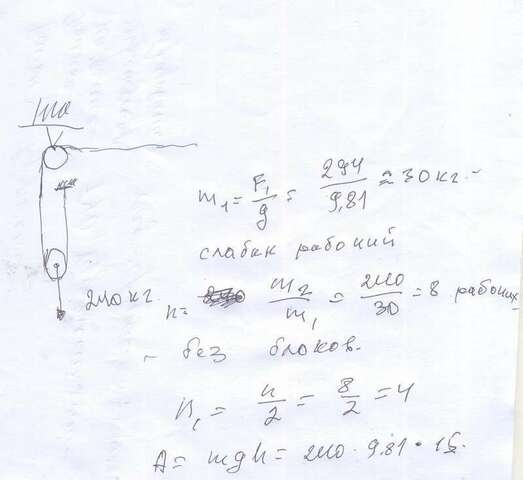 m₁ = F₁/g = 294/9,81 ≈ 30 кг. -
слабак рабочий
240 кг.
n = m₂/m₁ = 240/30 = 8 рабочих
- без блоков.
n₁ = n/2 = 8/2 = 4
A = mgh = 240 · 9,81 · 15.